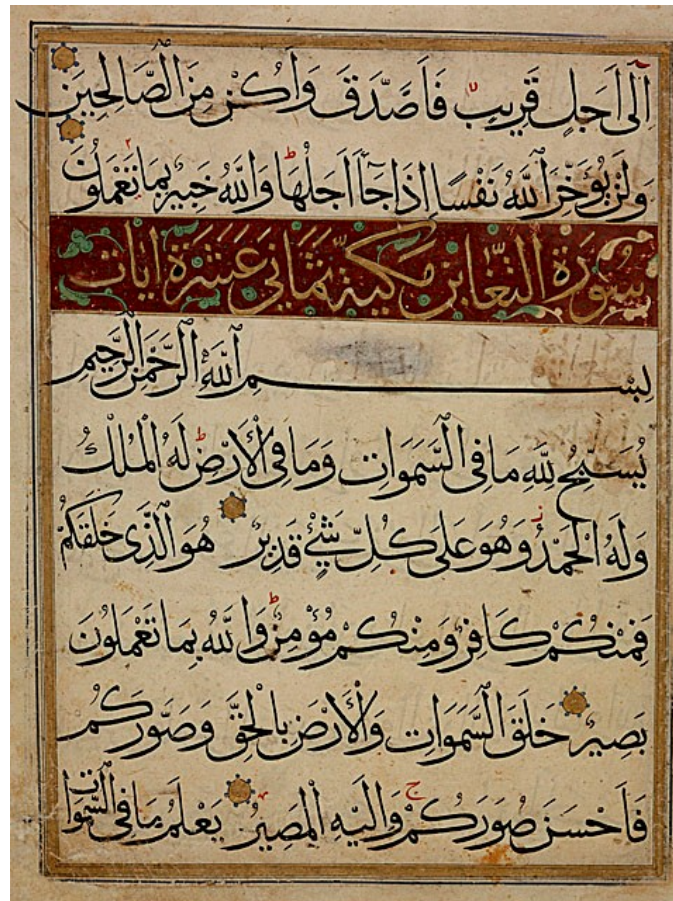 اِلَى اَجَلٍ قَرِيبٍ فَاَصَّدَّقَ وَاَكُنْ مِنَ الصَّالِحِينَ
وَلَنْ يُؤَخِّرَ اللّٰهُ نَفْسًا اِذَا جَآءَ اَجَلُهَا وَاللّٰهُ خَبِيرٌ بِمَا تَعْمَلُونَ
سُورَةُ التَّغَابُنِ مَكِّيَّةٌ ثَمَانِىَ عَشَرَةَ اٰيَات
بِسْمِ اللّٰهِ الرَّحْمٰنِ الرَّحِيمِ
يُسَبِّحُ لِلّٰهِ مَا فِى السَّمَوَاتِ وَمَا فِى الْاَرْضِ ط لَهُ الْمُلْكُ
وَلَهُ الْحَمْدُ ز وَهُوَ عَلَى كُلِّ شَىْءٍ قَدِيرٌ هُوَ الَّذِى خَلَقَكُمْ
فَمِنْكُمْ كَافِرٌ وَمِنْكُمْ مُؤْمِنٌ ط وَاللّٰهُ بِمَا تَعْمَلُونَ
بَصِيرٌ خَلَقَ السَّمَوَاتِ وَالْاَرْضَ بِالْحَقِّ وَصَوَّرَكُمْ
فَاَحْسَنَ صُوَرَكُمْ ج وَاِلَيْهِ الْمَصِيرُ يَعْلَمُ مَا فِى السَّمَوَاتِ